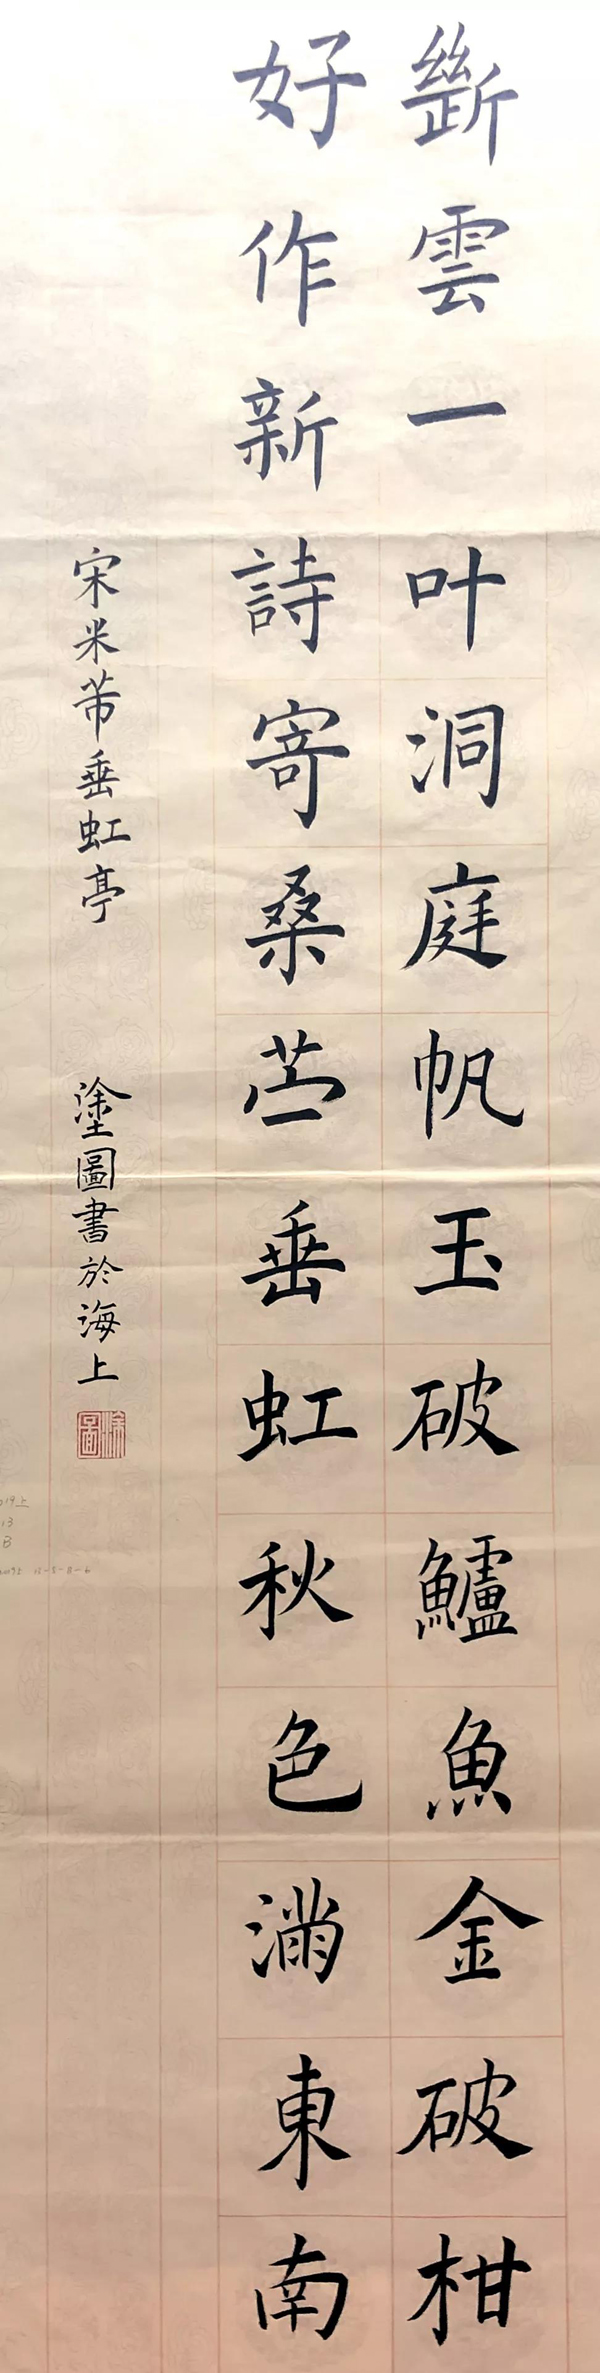 斷雲一叶洞庭帆玉破鱸魚金破柑
好作新詩寄桑苎垂虹秋色滿東南
宋米芾垂虹亭
塗圖書於海上
涂圖